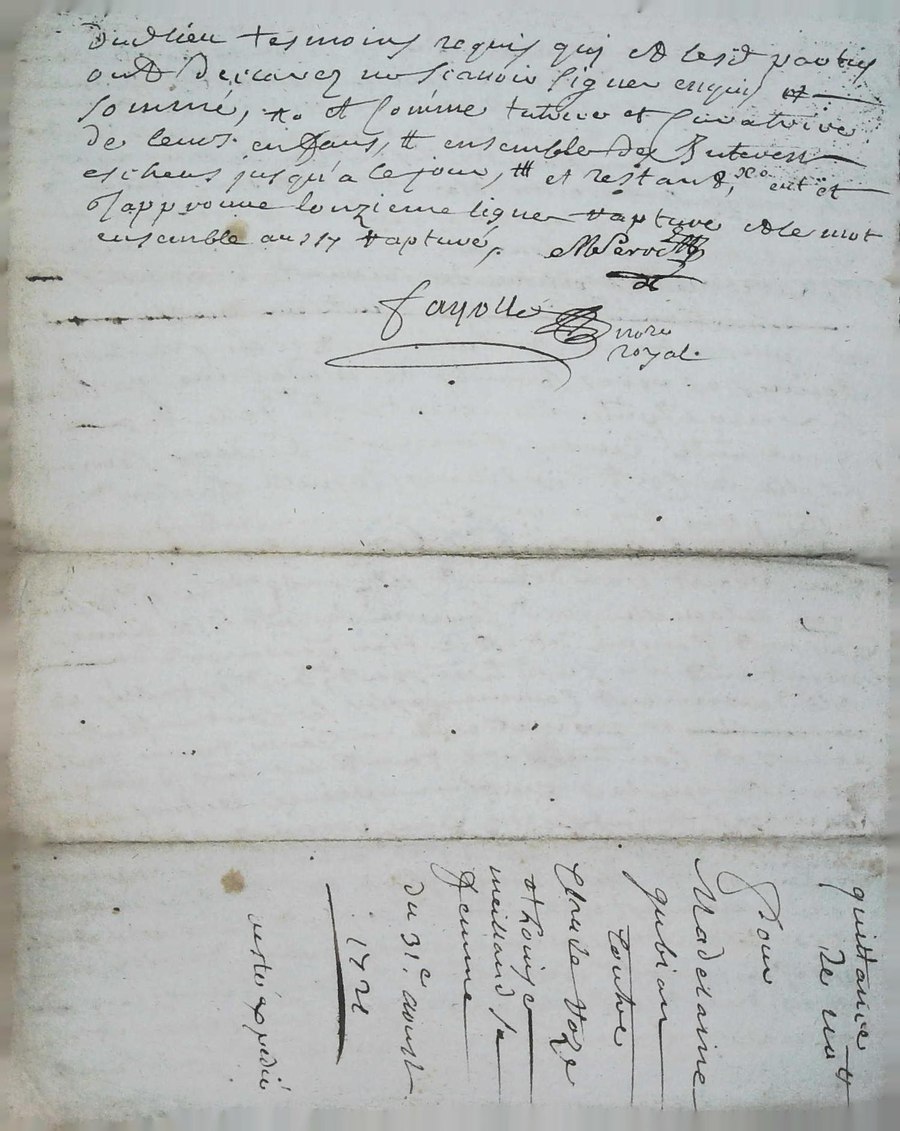 dud lieu tesmoins requis qui et lesd parties
ont declarez ne scavoir signer enquis et
sommé, et comme tutrice et curatrice
de leurs enfans, # ensemble des Interest
escheus jusqu'a ce jour, # et restant, et
Japprouve lonzieme ligne rapture et le mot
ensemble aussy rapturé,
fayolle
nore
royal.
quittance
de
Pour
Madelaine
gubian
Contre
Claude
et Louise
meilland sa
femme
du 31e aoust